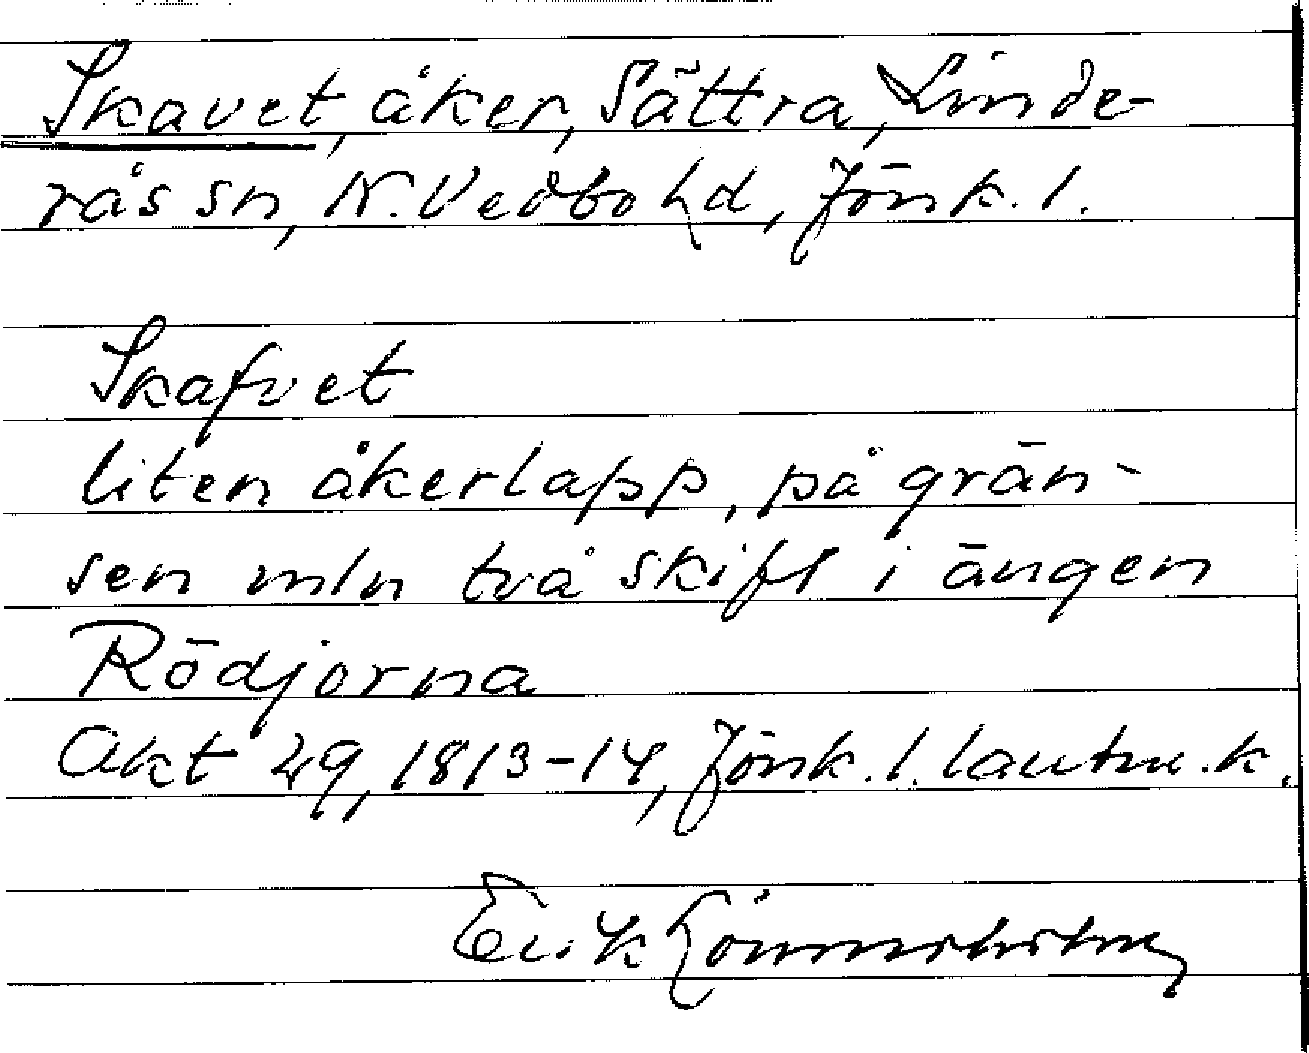 Skavet, åker, Sättra, Linde-
rås sn, N. Vedbo hd, Jönk. l.
Skafvet
liten åkerlapp, på grän-
sen mln två skift i ängen
Rödjorna
Akt 49, 1813-14, Jönk. l. lantm. k.
Erik